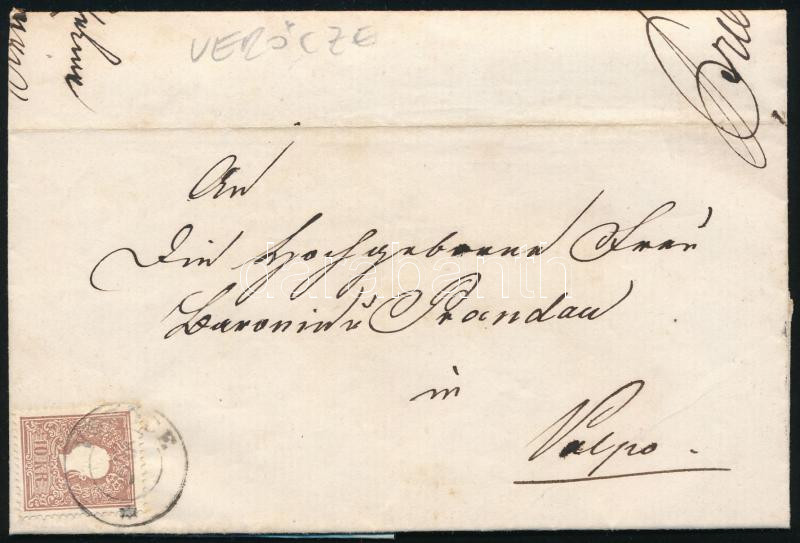 VERŐCZE
An
Die Hochgeborene Frau
Baronin v Prandau
in
Valpo.
darabanth
10 KR